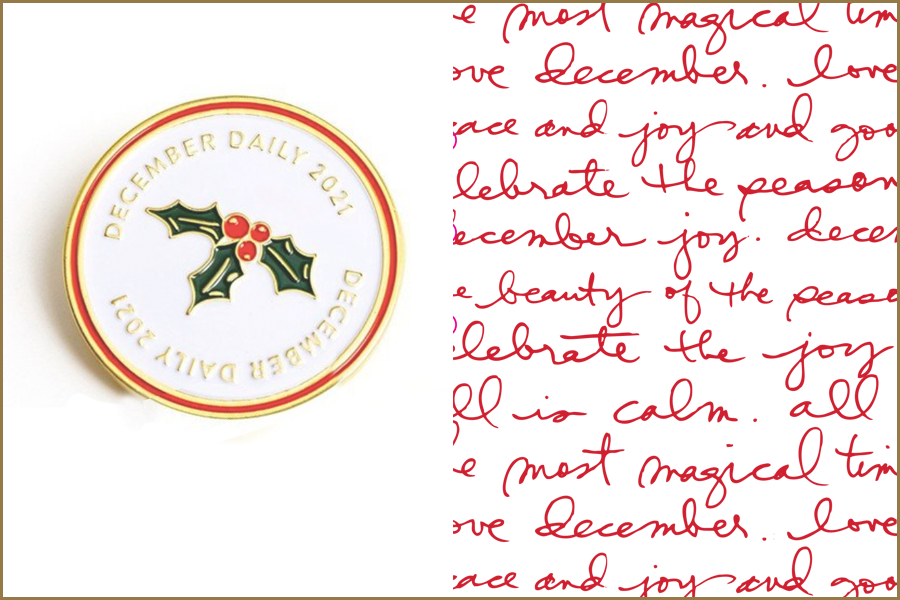 DECEMBER DAILY 2021
DECEMBER DAILY 2021
e most magical tim
ove december. love
ace and joy and goo
lebrate the season
ecember joy. decem
e beauty of the seaso
elebrate the joy
ll is calm. all
e most magical tim
ove december. love
ace and joy and goo